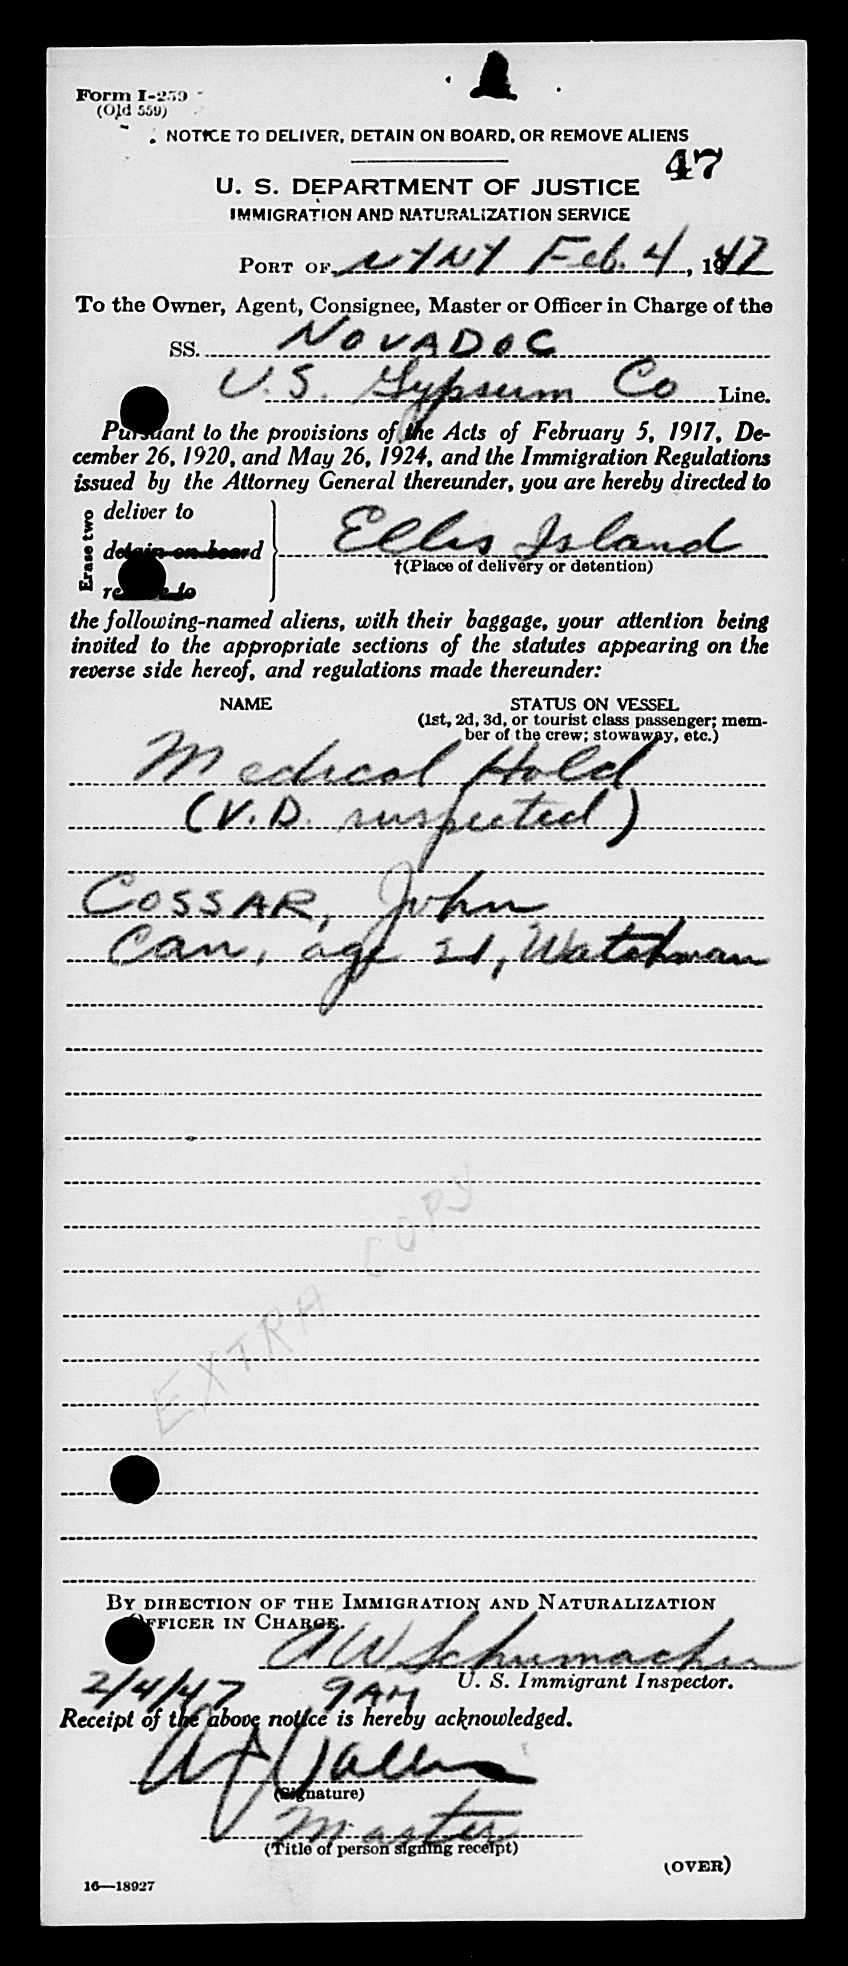 Form I-259
(Old 559)
NOTICE TO DELIVER, DETAIN ON BOARD, OR REMOVE ALIENS
47
U. S. DEPARTMENT OF JUSTICE
IMMIGRATION AND NATURALIZATION SERVICE
PORT OF NYNY Feb. 4, 1947
To the Owner, Agent, Consignee, Master or Officer in Charge of the
SS. NOVADOC
U.S. Gypsum Co Line.
Pursuant to the provisions of the Acts of February 5, 1917, De-
cember 26, 1920, and May 26, 1924, and the Immigration Regulations
issued by the Attorney General thereunder, you are hereby directed to
Erase two
deliver to
detain on board Ellis Island
†(Place of delivery or detention)
remove to
the following-named aliens, with their baggage, your attention being
invited to the appropriate sections of the statutes appearing on the
reverse side hereof, and regulations made thereunder:
NAME STATUS ON VESSEL
(1st, 2d, 3d, or tourist class passenger; mem-
ber of the crew; stowaway, etc.)
Medical Hold
(V.D. suspected)
COSSAR, John
Can, age 21, Watchman
EXTRA COPY
BY DIRECTION OF THE IMMIGRATION AND NATURALIZATION
OFFICER IN CHARGE.
A W Schumacher
U. S. Immigrant Inspector.
2/4/47 9AM
Receipt of the above notice is hereby acknowledged.
(Signature)
Master
(Title of person signing receipt)
(OVER)
16—18927